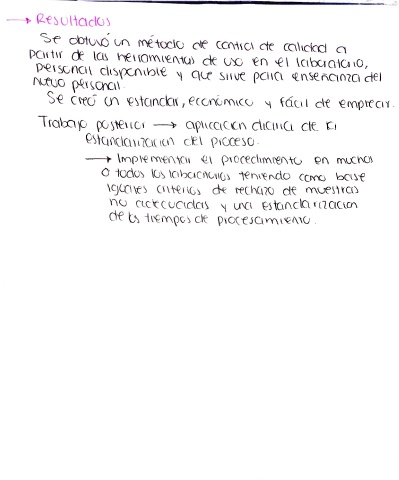 → Resultados
Se obtuvo un método de control de calidad a
partir de las herramientas de uso en el laboratorio,
personal disponible y que sirve para enseñanza del
nuevo personal.
Se creó un estandar, económico y fácil de emplear.
Trabajo posterior → aplicación diaria de la
estandarización del proceso.
→ Implementar el procedimiento en muchos
o todos los laboratorios teniendo como base
iguales criterios de rechazo de muestras
no adecuadas y una estandarización
de los tiempos de procesamiento.